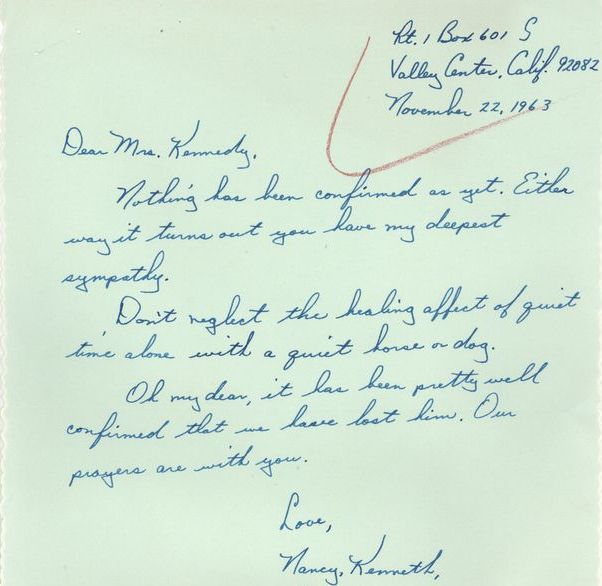 Rt. 1 Box 601 S
Valley Center, Calif. 92082
November 22, 1963
Dear Mrs. Kennedy,
Nothing has been confirmed as yet. Either
way it turns out you have my deepest
sympathy.
Don't neglect the healing affect of quiet
time alone with a quiet horse or dog.
Oh my dear, it has been pretty well
confirmed that we have lost him. Our
prayers are with you.
Love,
Nancy, Kenneth,